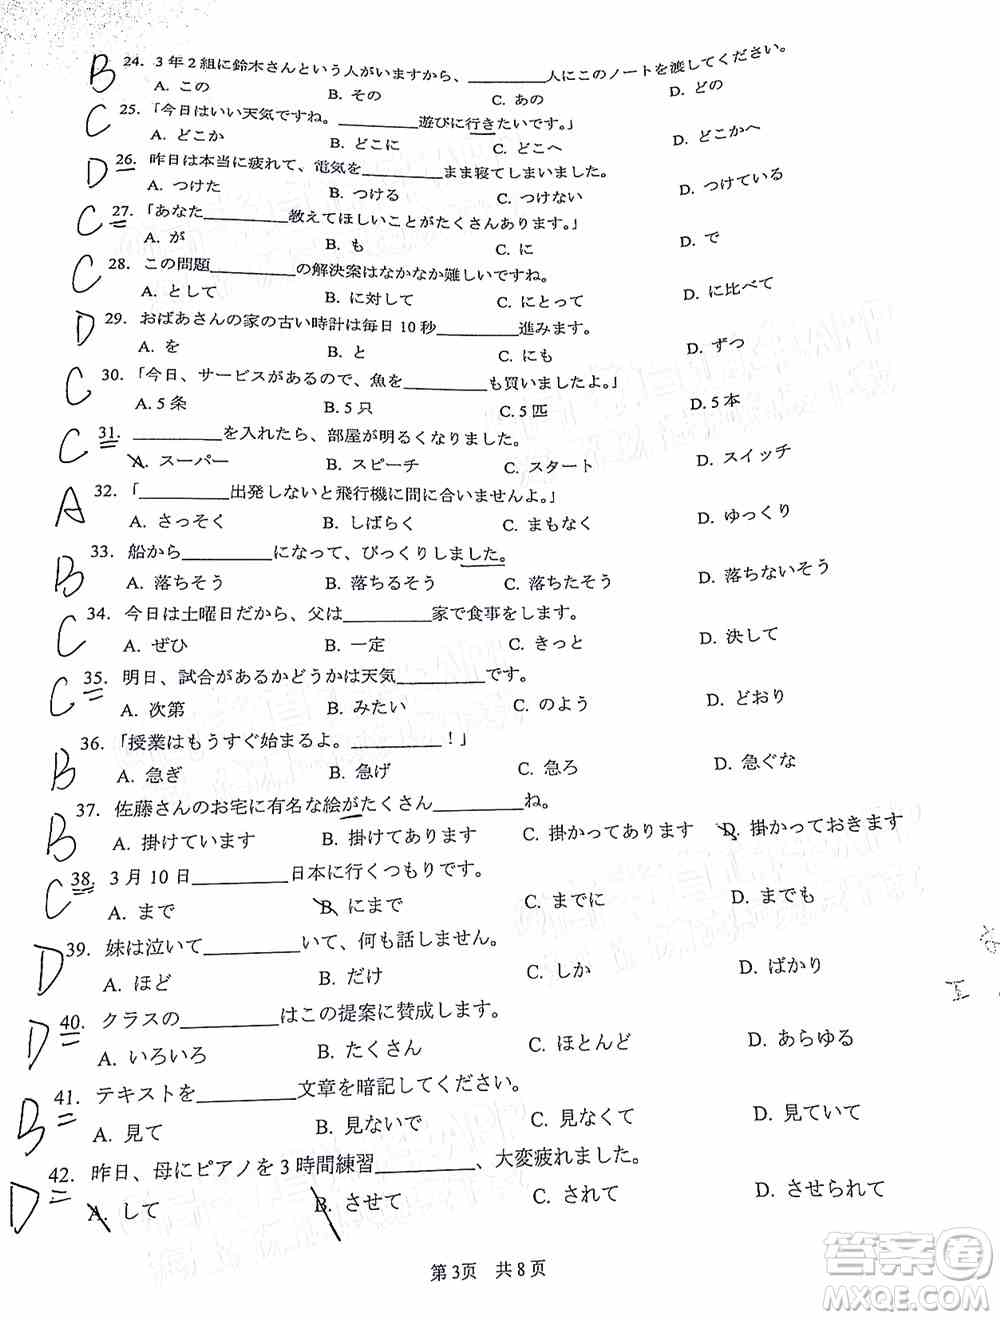 B 24. 3年2組に鈴木さんという人がいますから、________人にこのノートを渡してください。
A. この B. その C. あの D. どの
C 25. 「今日はいい天気ですね。________遊びに行きたいです。」
A. どこか B. どこに C. どこへ D. どこかへ
D 26. 昨日は本当に疲れて、電気を________まま寝てしまいました。
A. つけた B. つける C. つけない D. つけている
C 27. 「あなた________教えてほしいことがたくさんあります。」
A. が B. も C. に D. で
C 28. この問題________の解決案はなかなか難しいですね。
A. として B. に対して C. にとって D. に比べて
D 29. おばあさんの家の古い時計は毎日10秒________進みます。
A. を B. と C. にも D. ずつ
C 30. 「今日、サービスがあるので、魚を________も買いましたよ。」
A. 5条 B. 5只 C. 5匹 D. 5本
C 31. ________を入れたら、部屋が明るくなりました。
A. スーパー B. スピーチ C. スタート D. スイッチ
A 32. 「________出発しないと飛行機に間に合いませんよ。」
A. さっそく B. しばらく C. まもなく D. ゆっくり
B 33. 船から________になって、びっくりしました。
A. 落ちそう B. 落ちるそう C. 落ちたそう D. 落ちないそう
C 34. 今日は土曜日だから、父は________家で食事をします。
A. ぜひ B. 一定 C. きっと D. 決して
C 35. 明日、試合があるかどうかは天気________です。
A. 次第 B. みたい C. のよう D. どおり
B 36. 「授業はもうすぐ始まるよ。________！」
A. 急ぎ B. 急げ C. 急ろ D. 急ぐな
B 37. 佐藤さんのお宅に有名な絵がたくさん________ね。
A. 掛けています B. 掛けてあります C. 掛かってあります D. 掛かっておきます
C 38. 3月10日________日本に行くつもりです。
A. まで B. にまで C. までに D. までも
D 39. 妹は泣いて________いて、何も話しません。
A. ほど B. だけ C. しか D. ばかり
D 40. クラスの________はこの提案に賛成します。
A. いろいろ B. たくさん C. ほとんど D. あらゆる
B 41. テキストを________文章を暗記してください。
A. 見て B. 見ないで C. 見なくて D. 見ていて
D 42. 昨日、母にピアノを3時間練習________、大変疲れました。
A. して B. させて C. されて D. させられて
第3页 共8页
答案圈
MXQE.COM